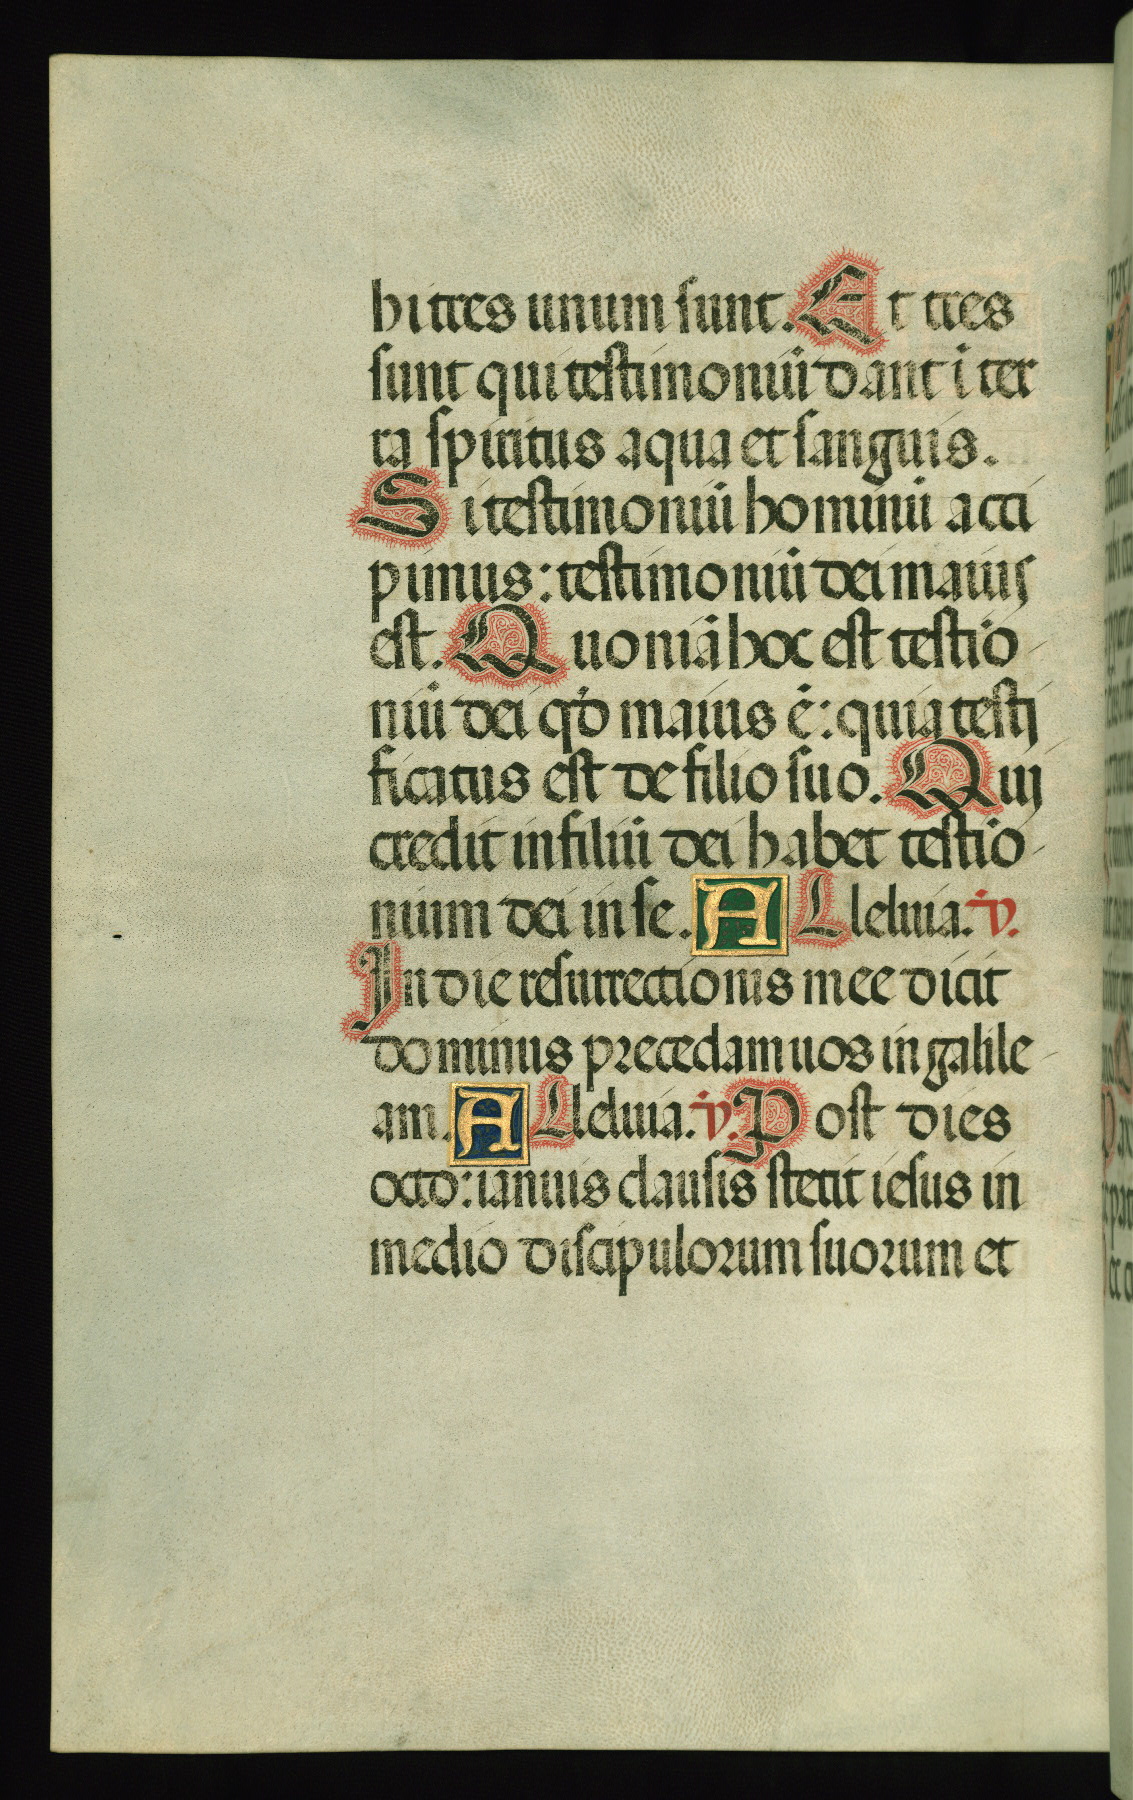 hi tres unum sunt. Et tres
sunt qui testimoniũ dant ĩ ter
ra spiritus aqua et sanguis.
Si testimoniũ hominũ acci
pimus: testimoniũ dei maius
est. Quoniã hoc est testio
niũ dei qđ maius ẽ: quia testi
ficatus est de filio suo. Qui
credit in filiũ dei habet testio
nium dei in se. ALleluia. v̇.
In die resurrectionis mee dicit
dominus precedam uos in galile
am. ALleluia. v̇. Post dies
octo: ianuis clausis stetit iesus in
medio discipulorum suorum et